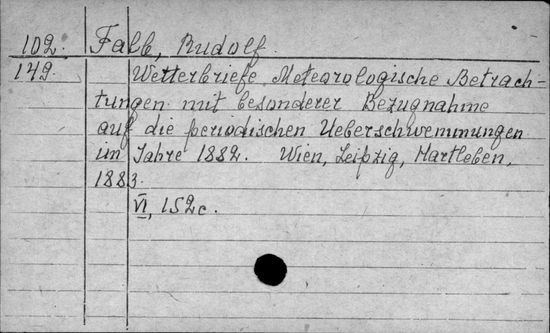 102. Falb, Rudolf.
149. Wetterbriefe. Meteorologische Betrach-
tungen mit besonderer Bezugnahme
auf die periodischen Ueberschwemmungen
im Jahre 1882. Wien, Leipzig, Hartleben,
1883.
VI, 152 c.